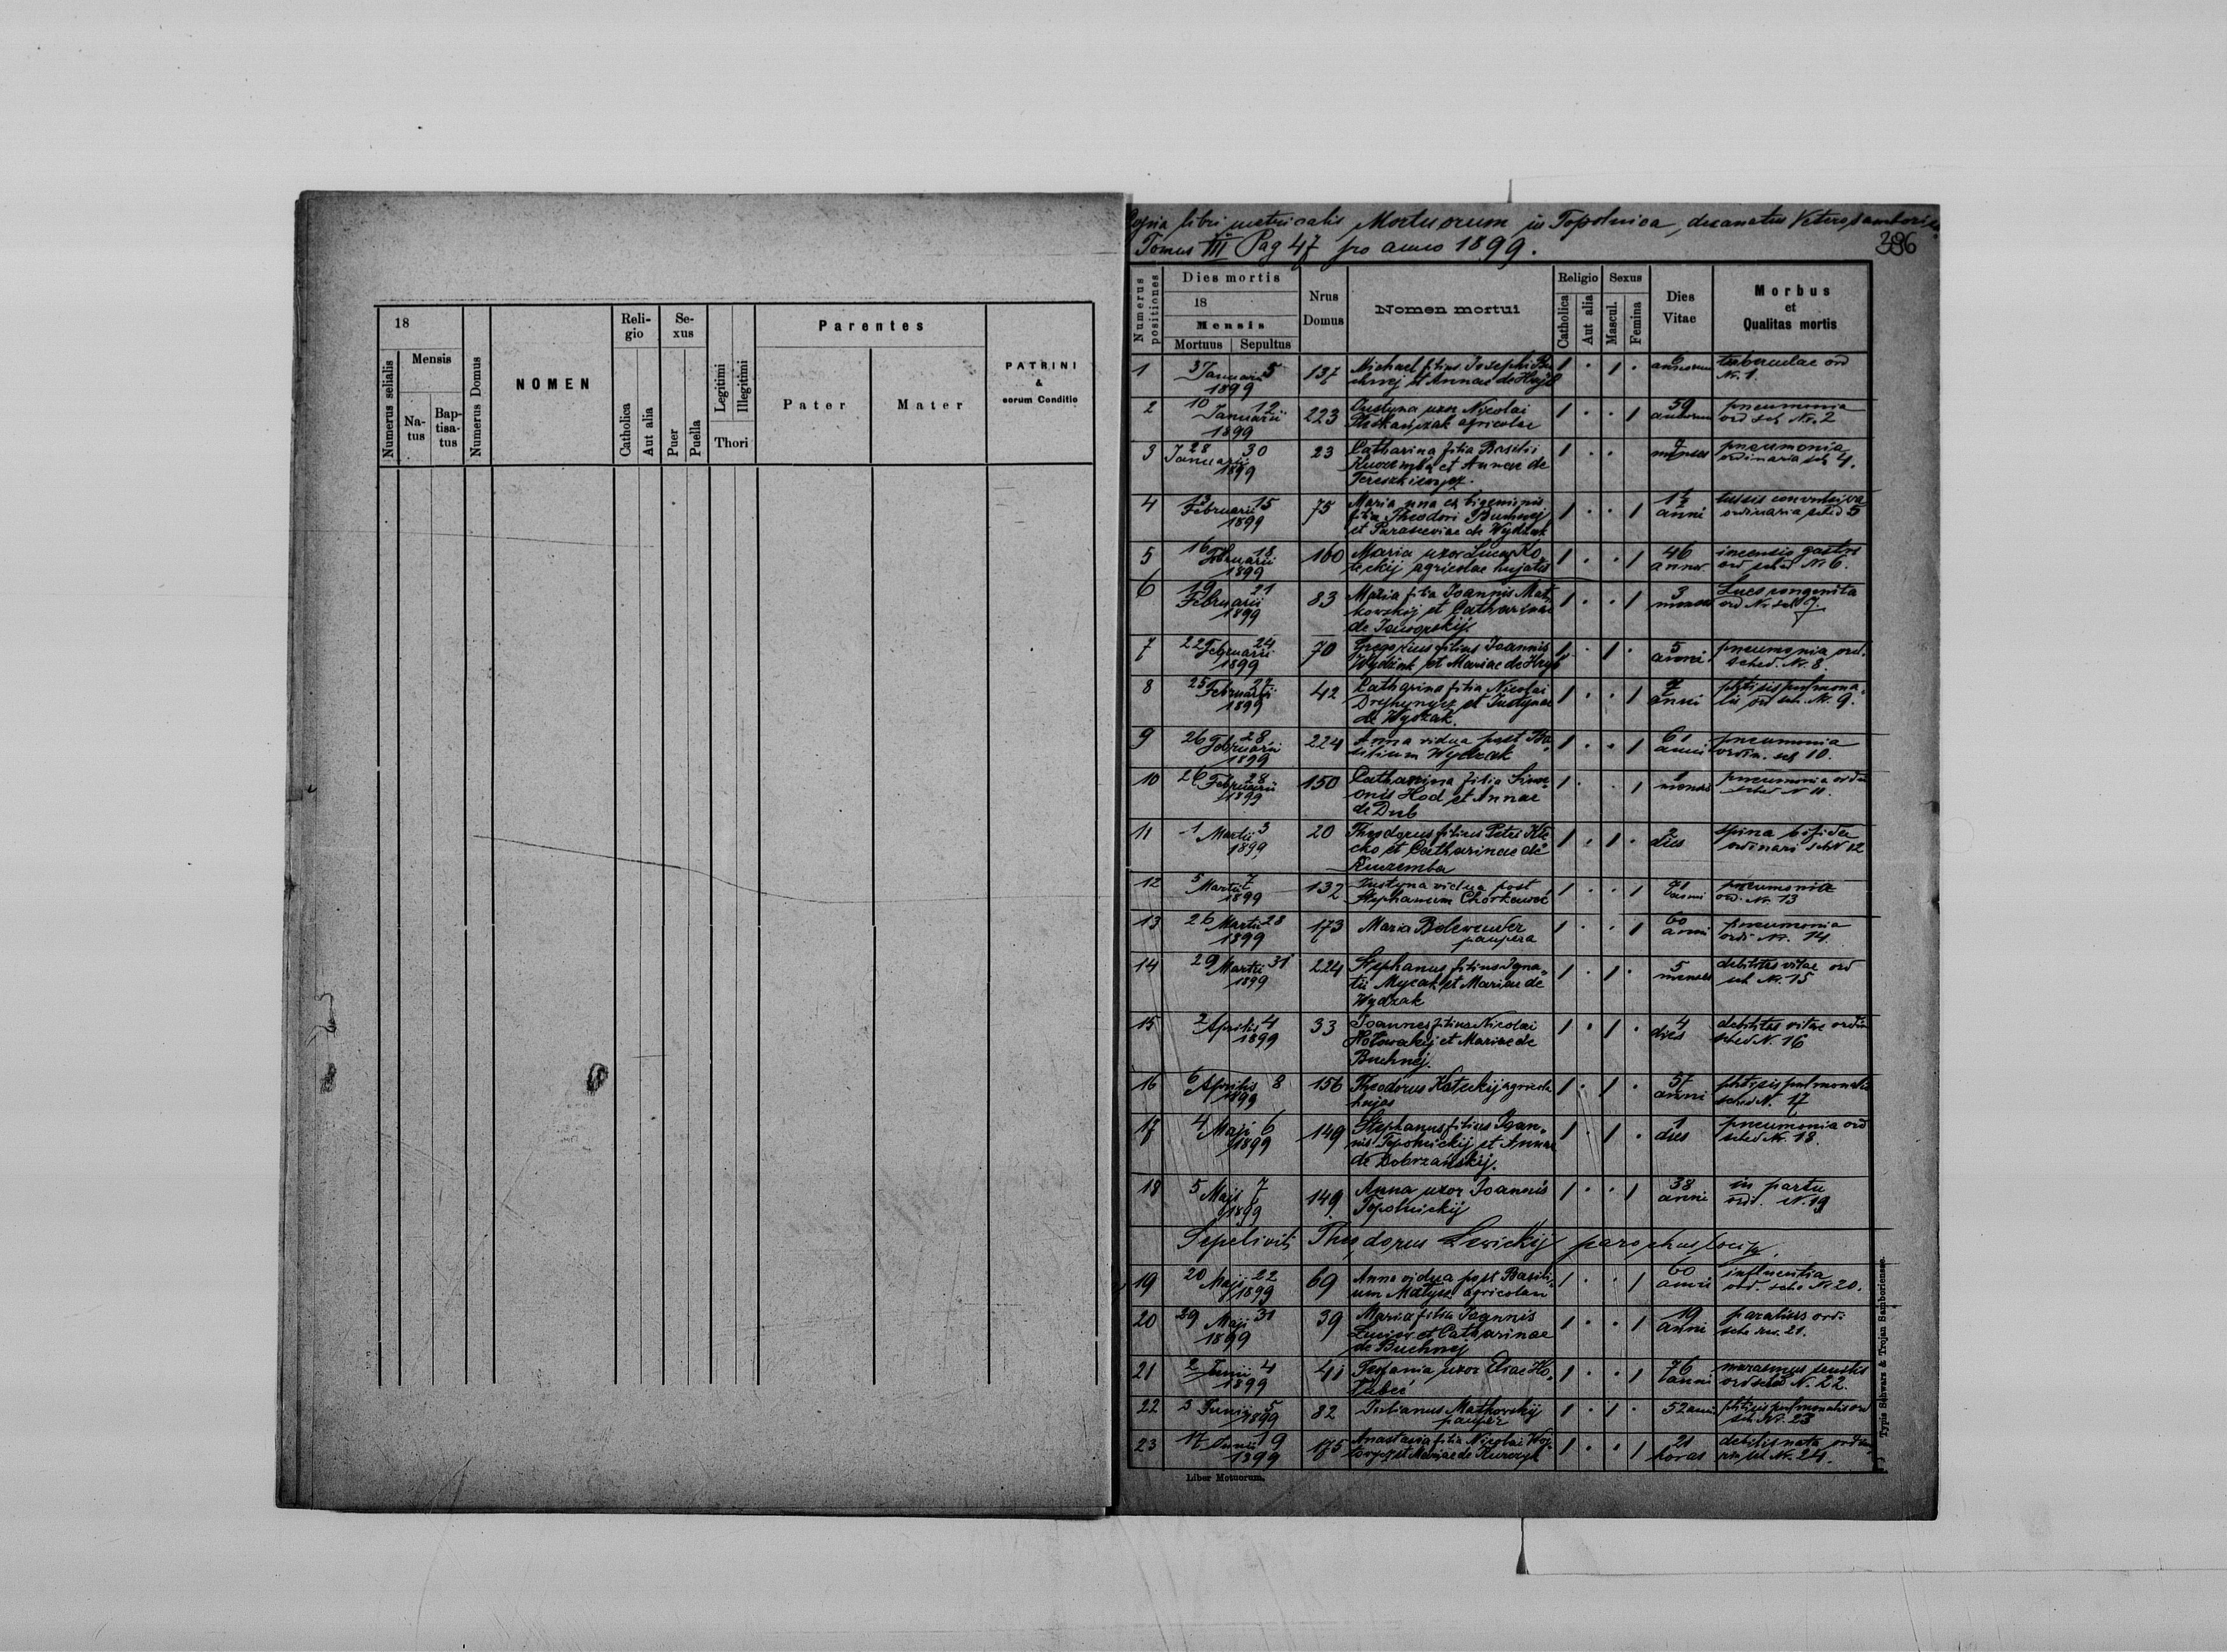 18
Numerus selialis
Mensis
Na-
tus
Bap-
tisa-
tus
Numerus Domus
NOMEN
Reli-
gio
Catholica
Aut alia
Se-
xus
Puer
Puella
Legitimi
Illegitimi
Thori
Parentes
Pater
Mater
PATRINI
&
eorum Conditio
Copia libri metricalis Mortuorum in Topolnica, decanatus Veterosamborien
Tomus III Pag 47 pro anno 1899.
396
Numerus positiones
Dies mortis
18
Mensis
Mortuus Sepultus
Nrus
Domus
Nomen mortui
Religio
Catholica
Aut alia
Sexus
Mascul.
Femina
Dies
Vitae
Morbus
et
Qualitas mortis
1 3 Januarii 5 1899 137 Michael filius Josephi Bu
chnej et Annae de Hryb
6 annorum tuberculae ord
Nr. 1.
2 10 Januarii 12 1899 223 Justyna uxor Nicolai
agricolae
59 annorum pneumonia
ord sch Nr. 2
3 28 Januarii 30 1899 23 Catharina filia Basilii
Kuzemba et Annae de
7 menses pneumonia
ordinaria sch 4.
4 13 Februarii 15 1899 75 Maria una ex bigeminis
filia Theodori Buchnej
et Parasceviae de Wydzak
1½ anni tussis convulsiva
ordinaria sched 5
5 16 Februarii 18 1899 160 Maria uxor Lucae Ko
teckij agricolae hujatis
46 annor gastri
ord sched Nr 6.
6 19 Februarii 21 1899 83 Maria filia Joannis Mat
kowskij et Catharinae
de Jaworskij.
3 menses Lues congenita
ord Nr sch 7.
7 22 Februarii 24 1899 70 Gregorius filius Joannis
Wydzak et Mariae de Hryb
5 anni pneumonia ord.
sched. Nr. 8.
8 25 Februarii 27 1899 42 Catharina filia Nicolai
et Justynae
de Wydzak.
7 anni phtisis pulmona
lis ord sch. Nr. 9.
9 26 Februarii 28 1899 224 Anna vidua post Ba
silium Wydzak
61 anni pneumonia
ordin. sch 10.
10 26 Februarii 28 1899 150 Catharina filia Sim
onis Hod et Annae
de Dub
1 mensis pneumonia ordi
sched N 11.
11 1 Martii 3 1899 20 Theodorus filius Petri
et Catharinae de
Kuzemba
2 dies spina bifida
ordinari sch N 12
12 5 Martii 7 1899 132 Justyna vidua post
Stephanum Chorkawec
71 anni pneumonia
ord. Nr. 13
13 26 Martii 28 1899 173 Maria
paupera
60 anni pneumonia
ordi Nr. 14
14 29 Martii 31 1899 224 Stephanus filius Igna
tii Mycak et Mariae de
Wydzak
5 menses debilitas vitae ord
sch Nr. 15
15 2 Aprilis 4 1899 33 Joannes filius Nicolai
Holowskij et Mariae de
Buchnej.
4 dies debilitas vitae ordin
sched N. 16
16 6 Aprilis 8 1899 156 Theodorus Koteckij agricola
hujas
57 anni phtisis pulmonalis
sched N. 17
17 4 Maji 6 1899 149 Stephanus filius Joan
nis Topolnickij et Annae
de Dobrzańskij.
1 dies pneumonia ord
sched Nr. 18.
18 5 Maji 7 1899 149 Anna uxor Joannis
Topolnickij
38 anni in partu
ord. N. 19
Sepelivit Theodorus Lewickij parochus loci
19 20 Maji 22 1899 69 Anna vidua post Basili
um Matysz agricolam
60 anni influentia
ord. sche Nr 20.
20 29 Maji 31 1899 39 Maria filia Joannis
et Catharinae
de Buchnej
19 anni paralisis ord.
sche nr. 21.
21 2 Junii 4 1899 41 Teofania uxor Eliae Ho
łubec
76 anni marasmus senilis
ord sched N. 22.
22 3 Junii 5 1899 82 Julianus Matkowskij
pauper
52 anni phtisis pulmonalis ord
sch. Nr. 23
23 17 Junii 19 1899 175 Anastasia filia Nicolai
et Mariae de
21 horas debilis nata ordin
sch Nr. 24.
Liber Motuorum.
Typis Schwarz & Trojan Samboriensse.